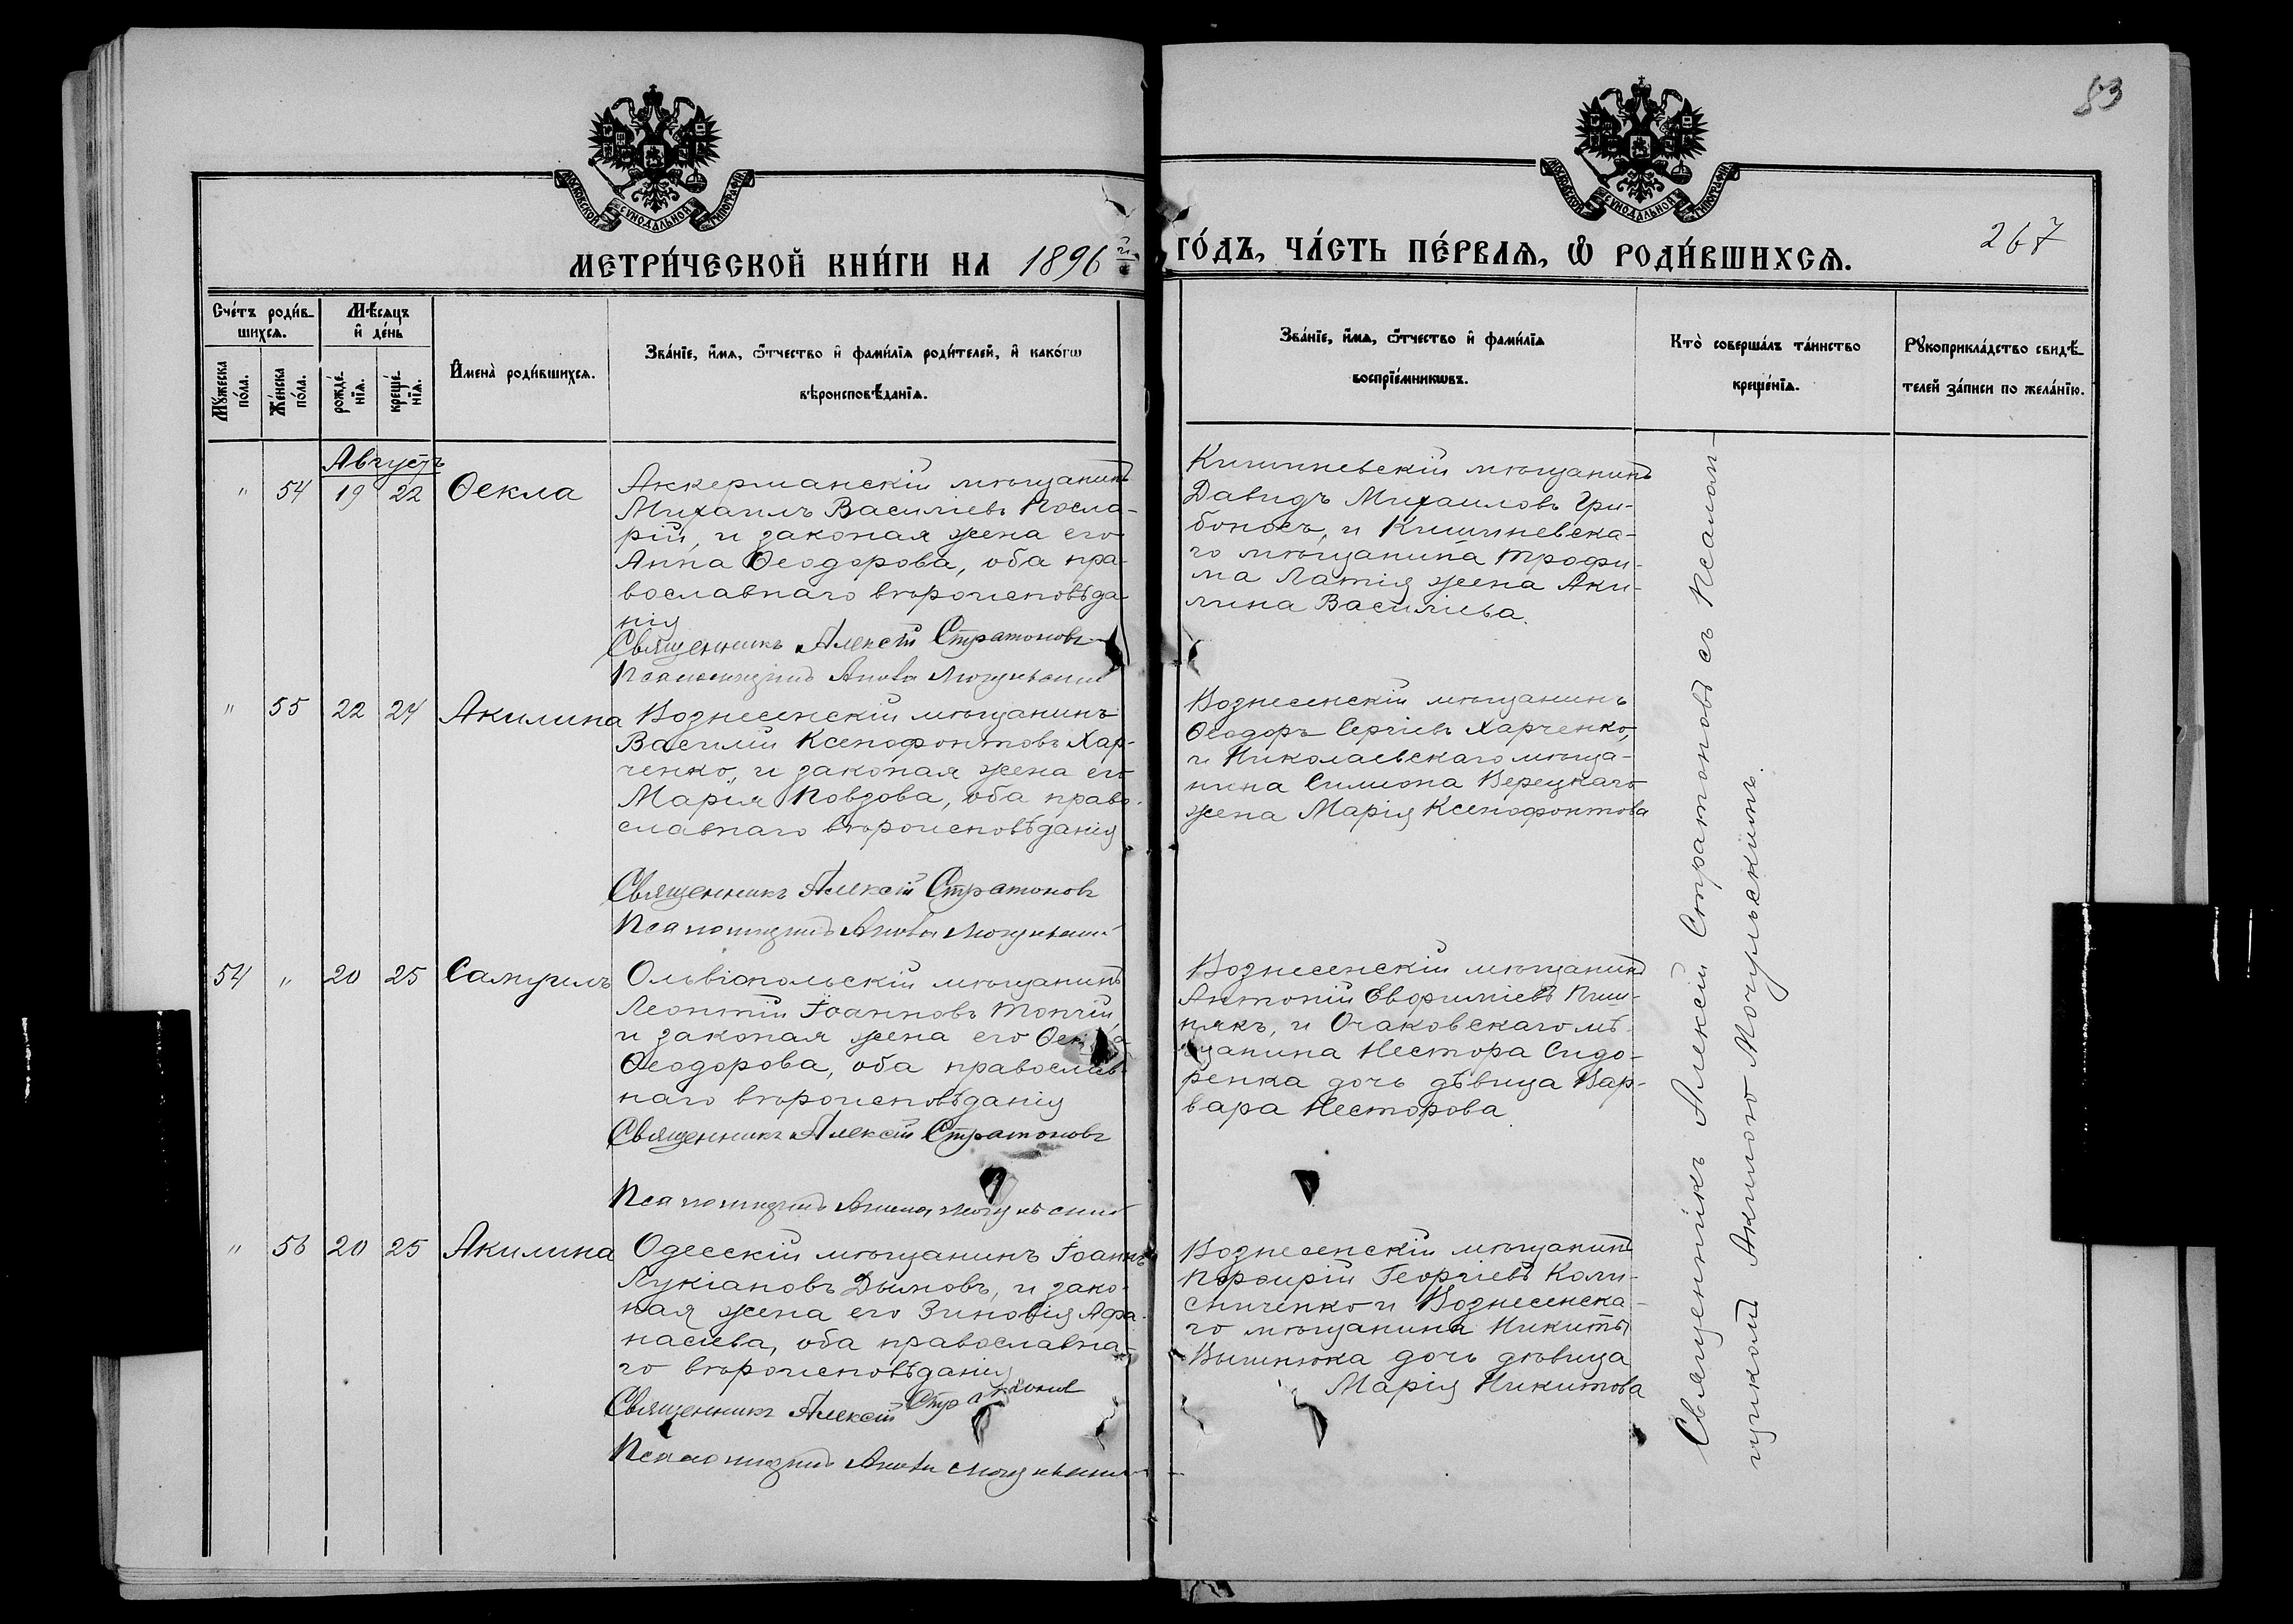 83
МОСКОВСКОЙ СѴНОДАЛЬНОЙ ТИПОГРАФІИ
МОСКОВСКОЙ СѴНОДАЛЬНОЙ ТИПОГРАФІИ
МЕТРИ́ЧЕСКОЙ КНИ́ГИ НА 1896 й
ГО́ДЪ, ЧА́СТЬ ПЕ́РВАѦ, Ѡ РОДИ́ВШИХСѦ.
267
Сче́тъ роди́в-
шихсѧ.
Мѣ́сѧцъ
и҆ де́нь
Мꙋ́жеска
по́ла.
Же́нска
по́ла.
рожде́-
нїѧ.
креще́-
нїѧ.
И҆мена̀ роди́вшихсѧ.
Зва́нїе, и҆́мѧ, ѻ҆́тчество и҆ фами́лїѧ роди́телей, и҆ како́гѡ
вѣроисповѣ́данїѧ.
Зва́нїе, и҆́мѧ, ѻ҆́тчество и҆ фами́лїѧ
воспрїе́мникѡвъ.
Кто̀ соверша́лъ та́инство
креще́нїѧ.
Рꙋкоприкла́дство свидѣ́-
телей за́писи по жела́нїю.
Августъ
" 54 19 22 Ѳекла
Аккерманскій мѣщанинъ
Михаилъ Василіевъ Посла-
рій, и законая жена его
Анна Ѳеодорова, оба пра-
вославнаго вѣроисповѣда-
нія
Священникъ Алексій Стратоновъ
Псаломщикъ
Кишиневскій мѣщанинъ
Давидъ Михаиловъ Гри-
боносъ, и Кишиневска-
го мѣщанина Трофи-
ма Латія жена Аки-
лина Василіева.
" 55 22 24 Акилина
Вознесенскій мѣщанинъ
Василій Ксенофонтовъ Хар-
ченко, и законая жена его
Марія Іовдова, оба право-
славнаго вѣроисповѣданія
Священникъ Алексій Стратоновъ
Псаломщикъ
Вознесенскій мѣщанинъ
Ѳеодоръ Сергіевъ Харченко,
и Николаевскаго мѣща-
нина Симиона Верецкаго
жена Марія Ксенофонтова
54 " 20 25 Самуилъ
Ольвіопольскій мѣщанинъ
Леонтій Іоанновъ Топчій,
и законая жена его
Ѳеодорова, оба православ-
наго вѣроисповѣданія
Священникъ Алексій Стратоновъ
Псаломщикъ
Вознесенскій мѣщанинъ
Антоній Евфиміевъ Пши-
някъ, и Очаковскаго мѣ-
щанина Нестора Сидо-
ренка дочь дѣвица Вар-
вара Несторова
" 56 20 25 Акилина
Одесскій мѣщанинъ Іоаннъ
Лукіановъ Дымовъ, и зако-
ная жена его Зиновія Афа-
насіева, оба православна-
го вѣроисповѣданія
Священникъ Алексій Стратоновъ
Псаломщикъ
Вознесенскій мѣщанинъ
Порфирій Георгіевъ Коли-
сниченко и Вознесенска-
го мѣщанина Никиты
дочь дѣвица
Марія Никитова
Священникъ Алексій Стратоновъ съ Псалом-
щикомъ Акимою Могульскимъ.